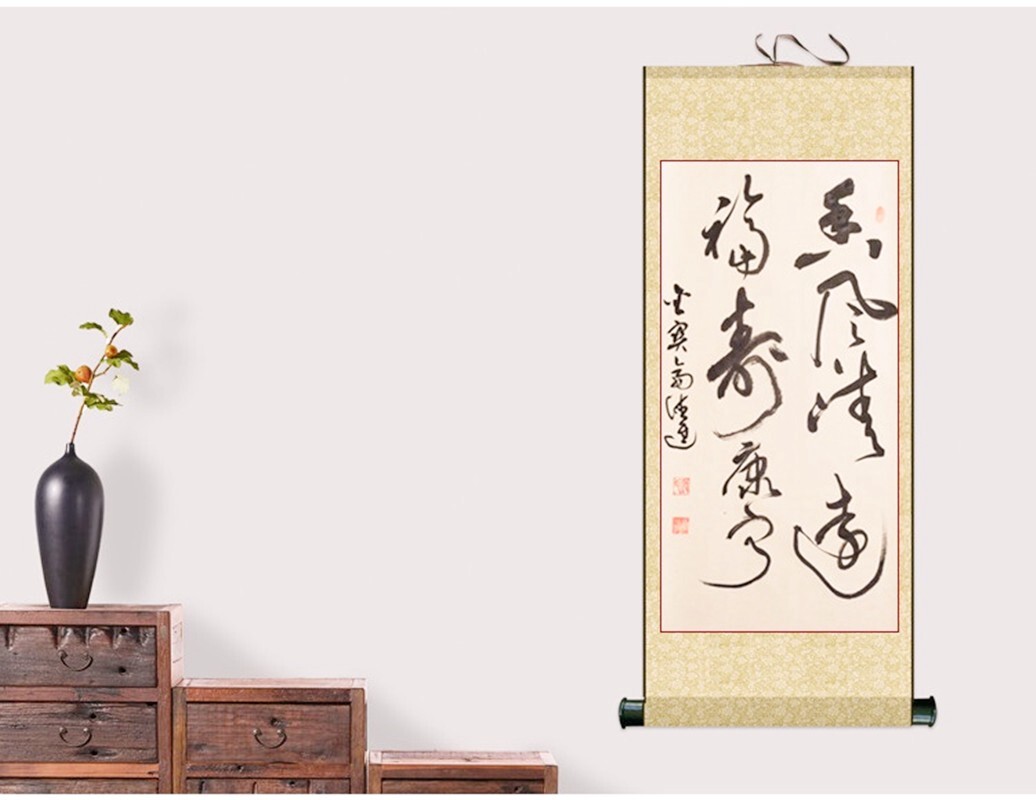 惠風清遠
福壽康寧